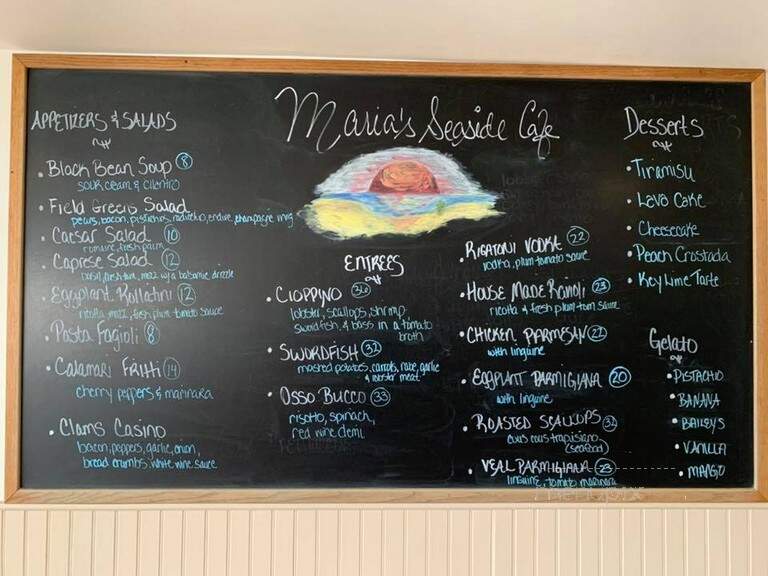 Maria's Seaside Cafe
APPETIZERS & SALADS
• Black Bean Soup 8
sour cream & cilantro
• Field Greens Salad
pears, bacon, pistachios, radicchio, endive, champagne vinag
• Caesar Salad 10
romaine, fresh parm
• Caprese Salad 12
basil, fresh tom, mozz w/a balsamic drizzle
• Eggplant Rollatini 12
ricotta, mozz, fresh plum tomato sauce
• Pasta Fagioli 8
• Calamari Fritti 14
cherry peppers & marinara
• Clams Casino
bacon, peppers, garlic, onion,
bread crumbs, white wine sauce
ENTREES
• CIOPPINO 36
lobster, scallops, shrimp,
swordfish, & bass in a tomato
broth
• SWORDFISH 32
mashed potatoes, carrots, rabe, garlic
& lobster meat
• OSSO BUCCO 33
risotto, spinach,
red wine demi
• RIGATONI VODKA 22
vodka, plum tomato sauce
• HOUSE MADE RAVIOLI 23
ricotta & fresh plum tom sauce
• CHICKEN PARMESAN 22
with linguine
• EGGPLANT PARMIGIANA 20
with linguine
• ROASTED SCALLOPS 32
cous cous trapisiano
(seafood)
• VEAL PARMIGIANA 23
linguine, tomato marinara
Desserts
• Tiramisu
• Lava Cake
• Cheesecake
• Peach Crostada
• Key Lime Tarte
Gelato
• PISTACHIO
• BANANA
• BAILEYS
• VANILLA
• MANGO